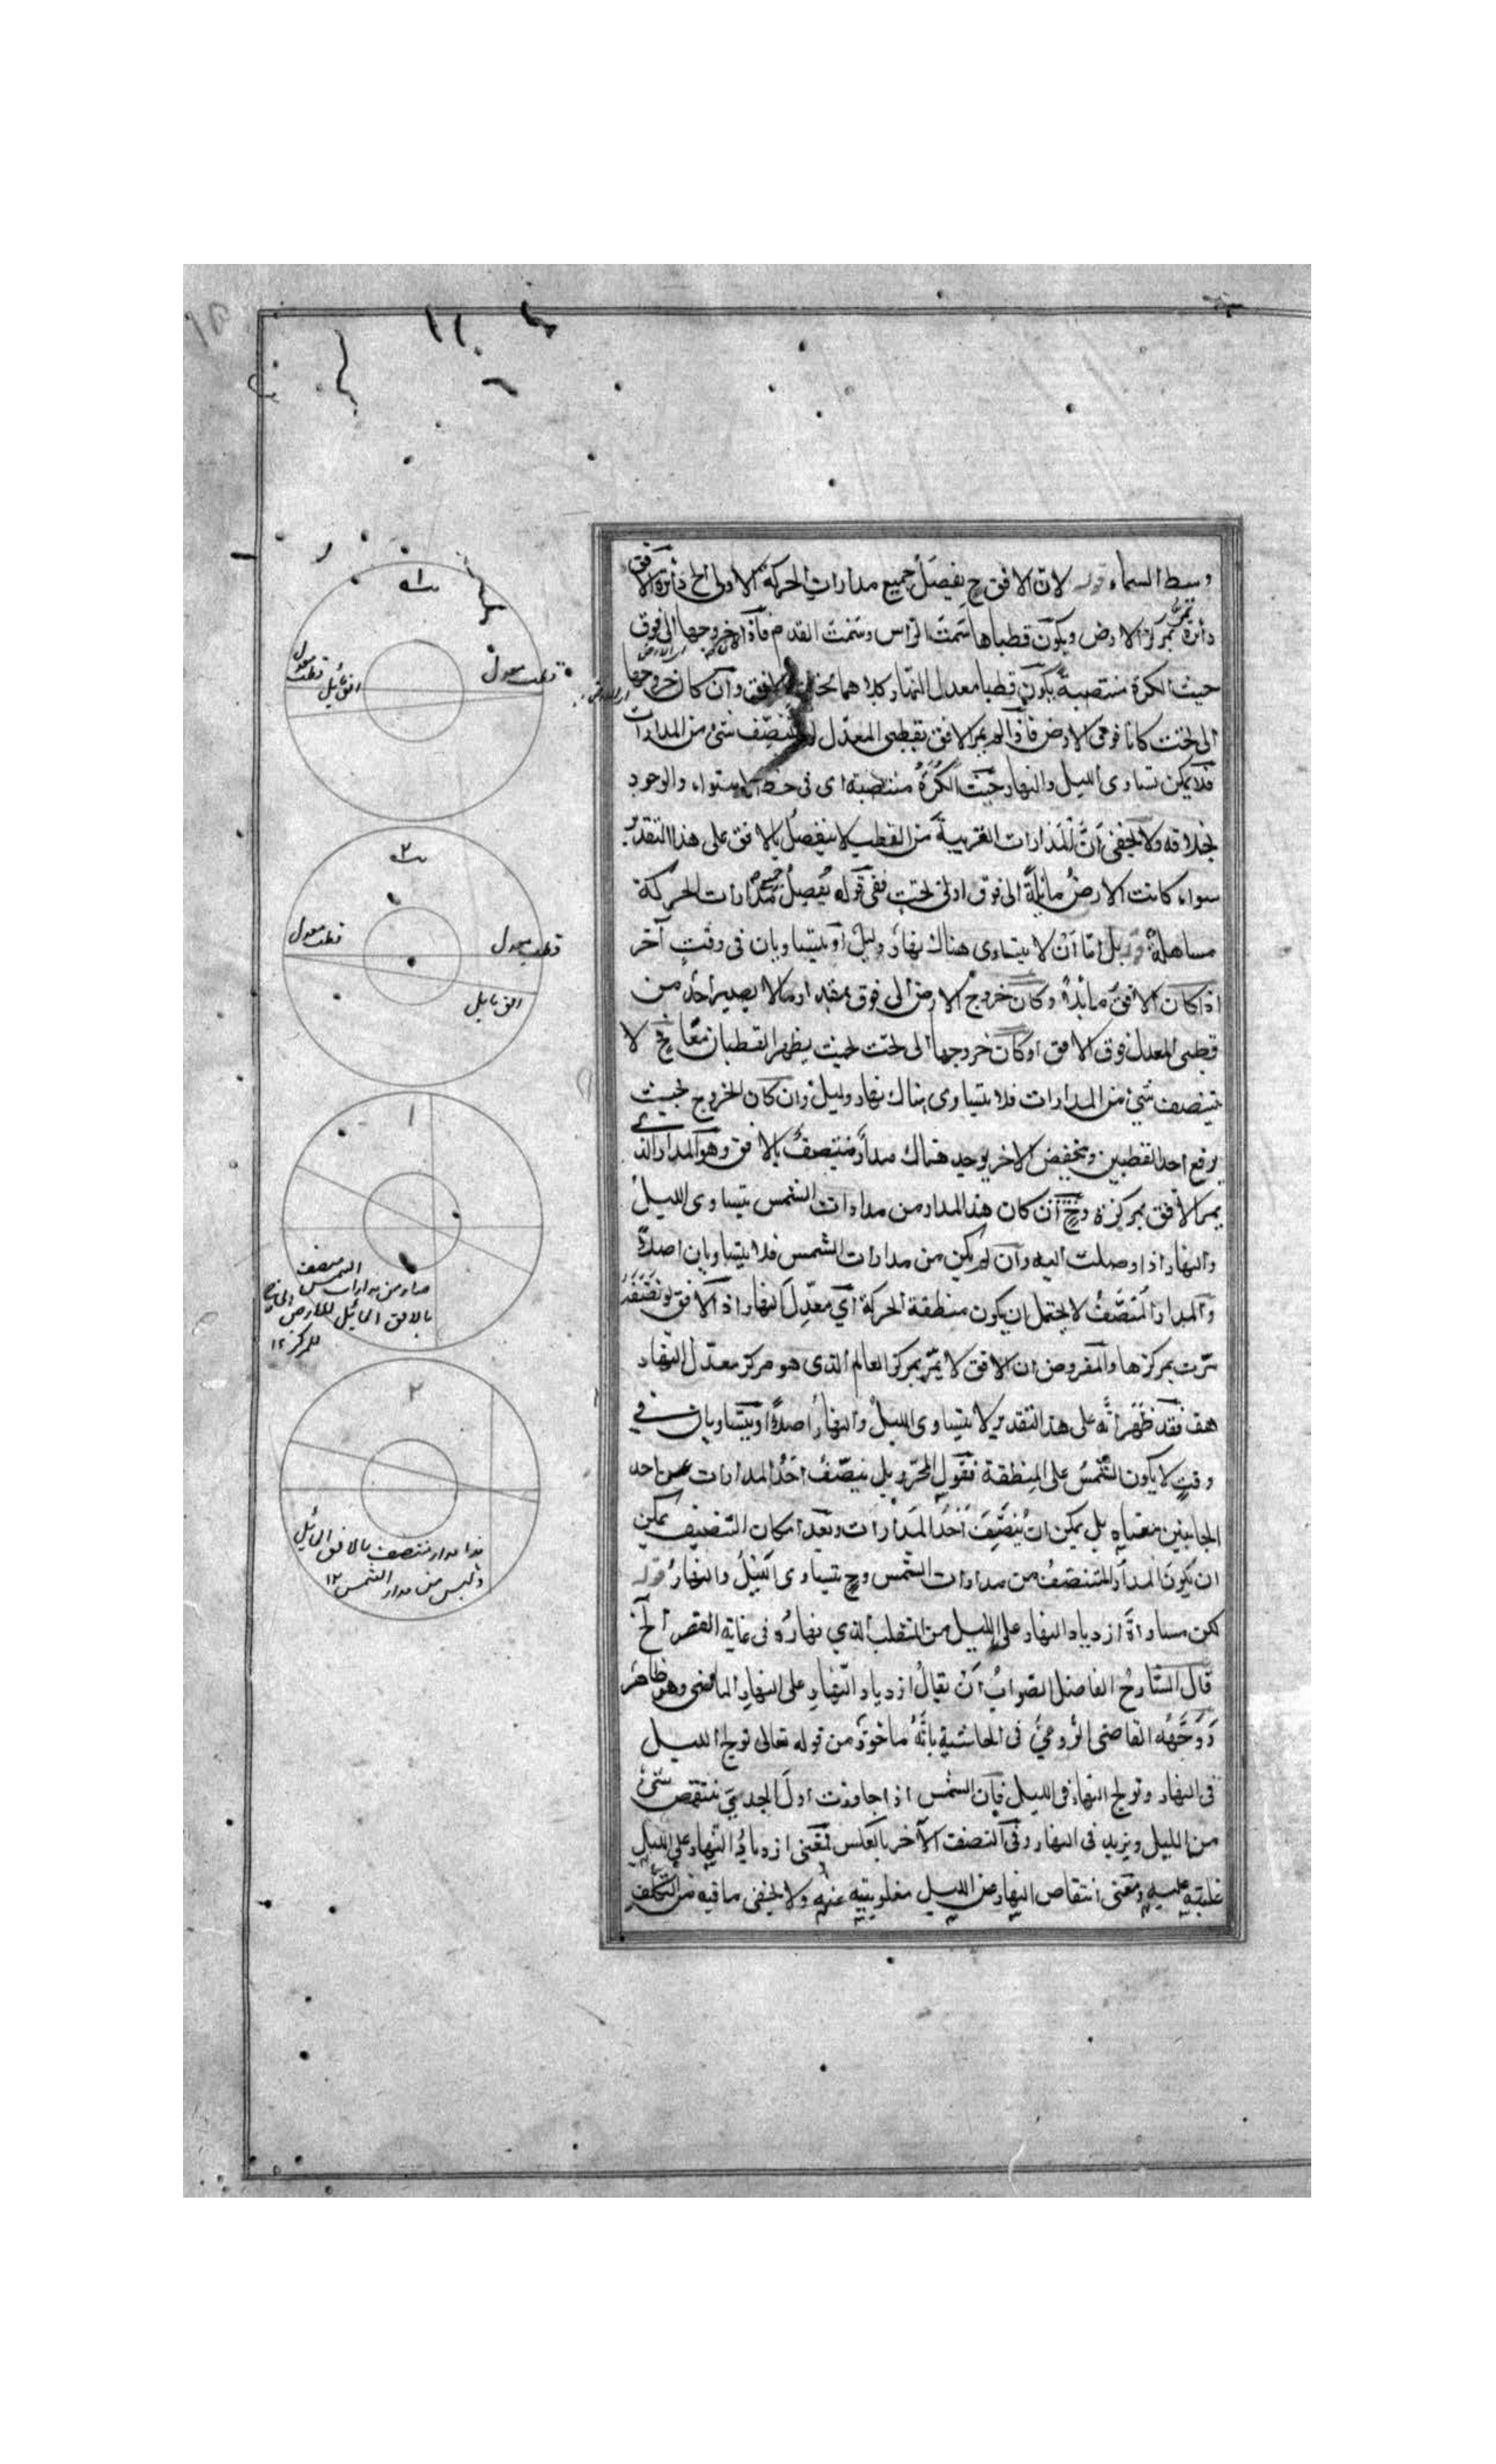 وسط السماء قوله لان الافق ح يفصل جميع مدارات الحركة الاولى الخ دائرة الافق
دائرة تمر بمركز الارض ويكون قطباها سمت الراس وسمت القدم فاذا كان خروجها الى فوق
حيث الكرة منتصبة يكون قطبا معدل النهار كلاهما تحت الافق وان كان خروجها
الى تحت كانا فوقى الارض فاذا لم يمر الافق بقطبى المعدل لم ينصف شئ من المدارات
فلا يمكن تساوى الليل والنهار حيث الكرة منتصبة اى فى خط الاستواء والوجود
بخلافه ولا يخفى ان المدارات القريبة من القطب لا ينفصل بالافق على هذا التقدير
سواء كانت الارض مائلة الى فوق او الى تحت ففى قوله يفصل جميع مدارات الحركة
مساهلة قوله بل اما ان لا يتساوى هناك نهار وليل او يتساويان فى وقت آخر
اذا كان الافق مائلا وكان خروج الارض الى فوق بمقدار ما لا يصير احد من
قطبى المعدل فوق الافق او كان خروجها الى تحت بحيث يظهر القطبان معا فح لا
يتنصف شئ من المدارات فلا يتساوى هناك نهار وليل وان كان الخروج بحيث
يرفع احد القطبين ويخفض الاخر يوجد هناك مدار منتصف بالافق وهو المدار الذى
يمر الافق بمركزه وح ان كان هذا المدار من مدارات الشمس يتساوى الليل
والنهار اذا وصلت اليه وان لم يكن من مدارات الشمس فلا يتساويان اصلا
والمدار المنصف لا يحتمل ان يكون منطقة الحركة اى معدل النهار اذ الافق لو نصفه
مرت بمركزها والمفروض ان الافق لا يمر بمركز العالم الذى هو مركز معدل النهار
هف فقد ظهر انه على هذا التقدير لا يتساوى الليل والنهار اصلا او يتساويان فى
وقت لا يكون الشمس على المنطقة فقول المحرر بل ينصف احد المدارات عن احد
الجانبين معناه بل يمكن ان ينصف احد المدارات وبعد امكان التنصيف يمكن
ان يكون المدار المتنصف من مدارات الشمس وح يتساوى الليل والنهار قوله
لكن مساواة ازدياد النهار على الليل من المنقلب الذي نهاره فى غاية القصر الخ
قال الشارح الفاضل الصواب ان يقال ازدياد النهار على النهار الماضى وهو ظاهر
ووجهه القاضى الرومي فى الحاشية بانه ماخوذ من قوله تعالى تولج الليل
فى النهار وتولج النهار فى الليل فان الشمس اذا جاوزت اول الجدى ينتقص شئ
من الليل ويزيد فى النهار وفى النصف الآخر بالعكس فمعنى ازدياد النهار على الليل
غلبته عليه ومعنى انتقاص النهار من الليل مغلوبيته عنه ولا يخفى ما فيه من التكلف
قطب معدل
قطب معدل
افق مائل
٢
قطب معدل
قطب معدل
افق مائل
١
بالافق المائل للارض
للمركز ١٢
٢
هذا مدار منتصف بالافق المائل
وليس من مدار الشمس ١٢